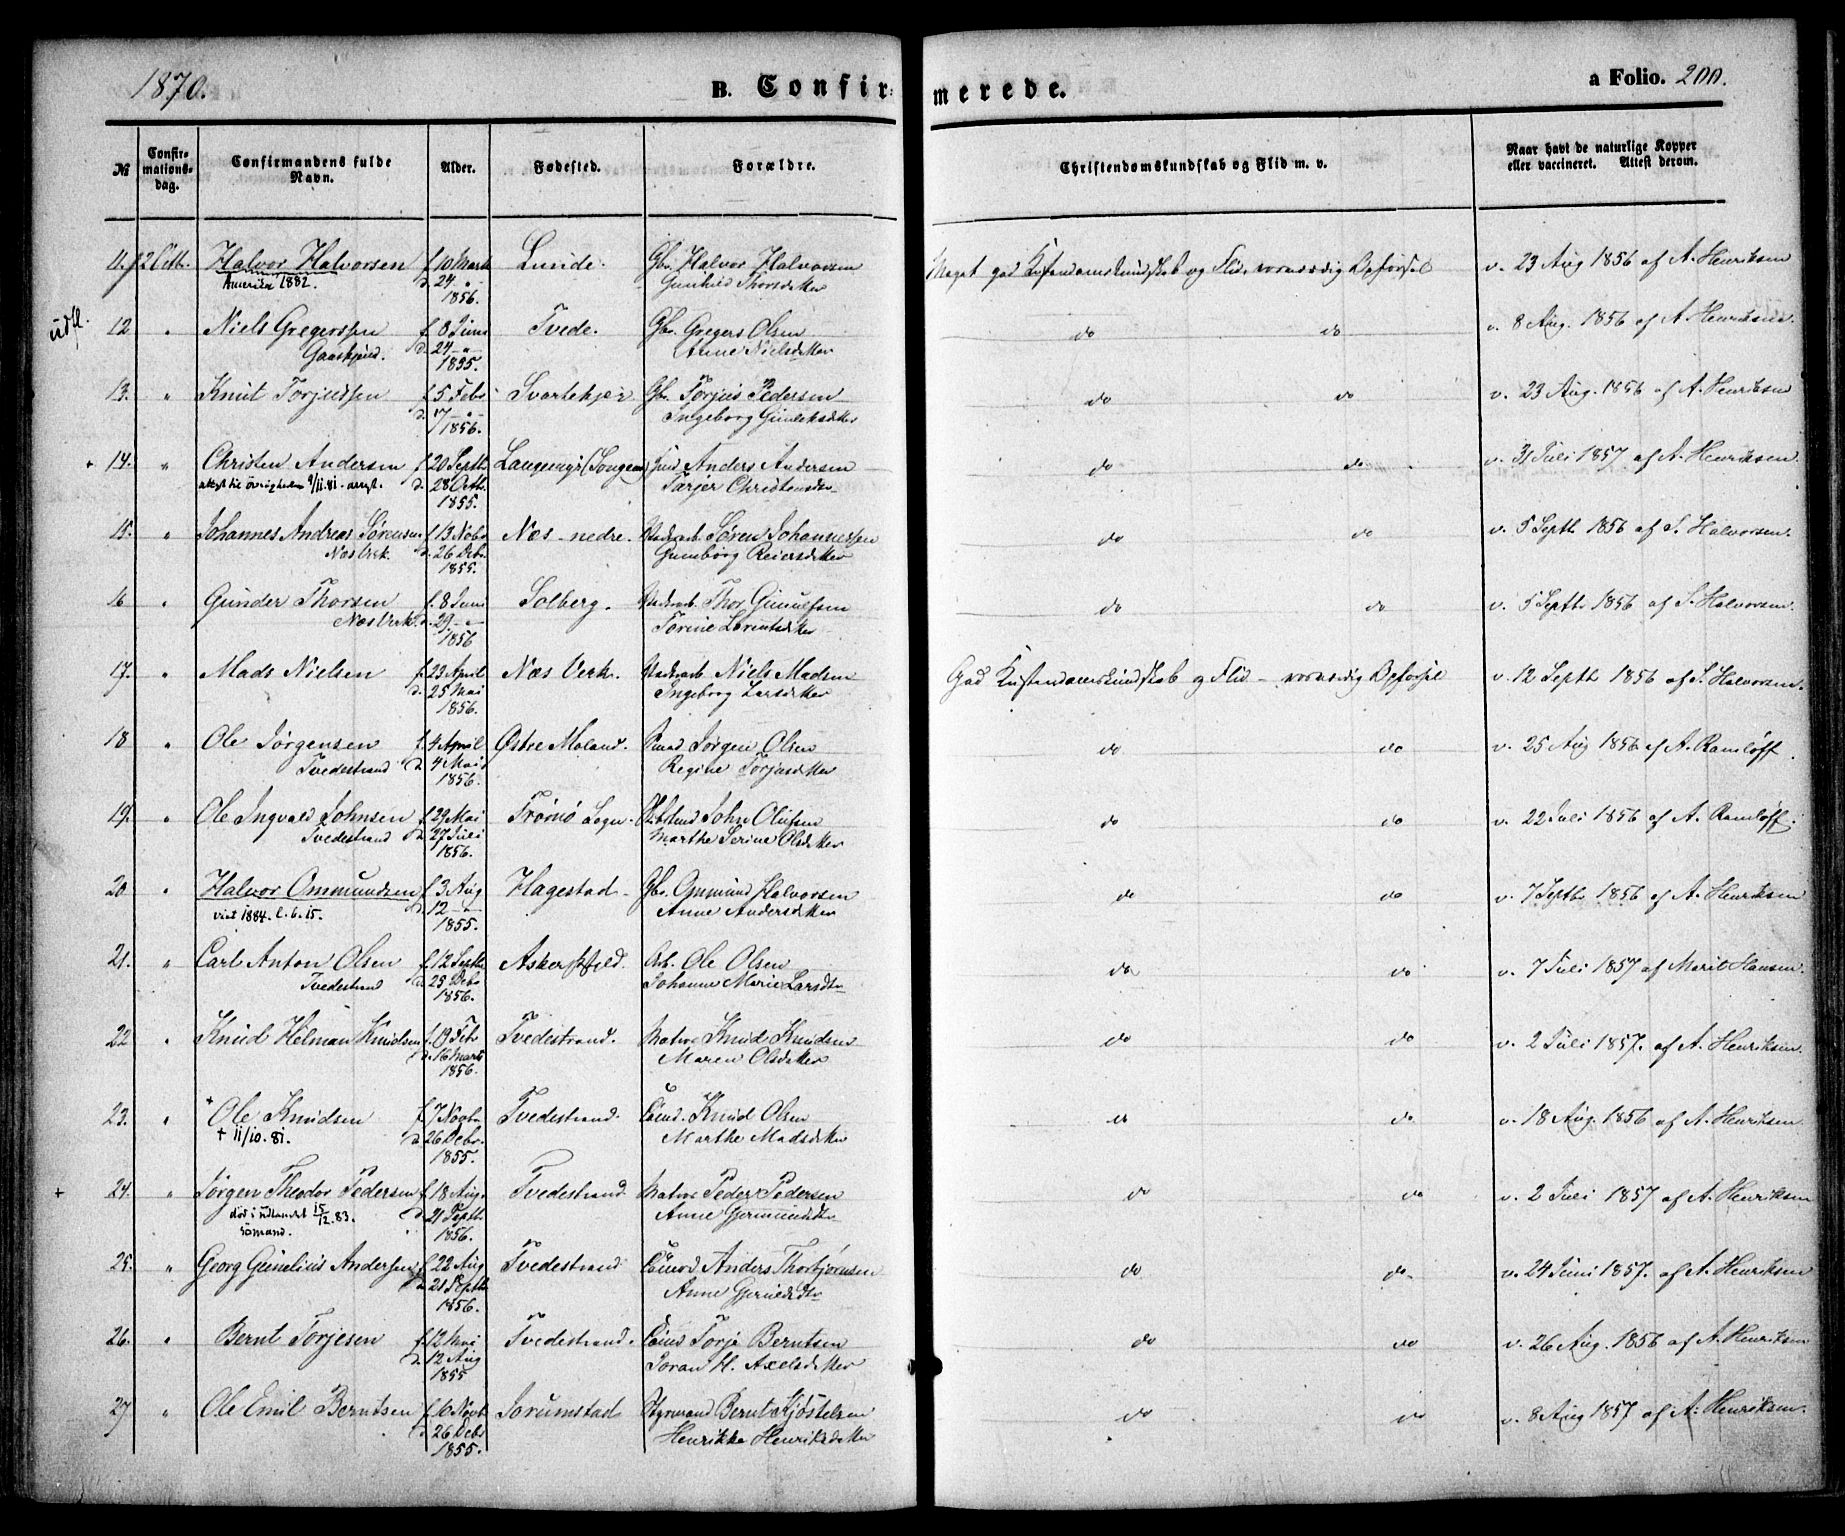 1870.
B. Confir=
merede.
a Folio. 200.
№
Confir-
mations-
dag.
Confirmandens fulde
Navn.
Alder.
Fødested.
Forældre.
Christendomskundskab og Flid m. v.
Naar havt de naturlige Kopper
eller vaccineret. Attest derom.
11. 2 Octb. Halvor Halvorsen f. 10 Marts Lunde. Gbr. Halvor Halvorsen Meget god Kristendomskundskab og Flid, Opførsel v. 23 Aug 1856 af A. Henriksen
Amerika 1882. d. 24 " Gunhild Thorsdatter
1856.
udfl. 12 " Niels Gregersen f. 8 Juni Tvede. Gbr. Gregers Olsen do do v. 8 Aug. 1856 af A. Henriksen.
d. 24 - " Anne Nielsdatter
1855.
13. " Knut Torjussen f. 5 Febr Svartekjær Gbr. Torjus Pedersen do do v. 23 Aug. 1856 af A. Henriksen
d. 17 - " Ingeborg Gunleksdatter
1856.
+ 14. " Christen Andersen f. 20 Septb Langemyr (Songe) Anders Andersen do do v. 31 Juli 1857 af A. Henriksen.
9/11.81. d. 28 Octb. Tarjer Christensdtr
1855.
15. " Johannes Andreas Sørensen f. 13 Novbr Næs nedre. Søren Johannessen do do v. 5 Septb 1856 af S. Halvorsen.
Næs Verk. d. 26 Debr. Gunborg Reiersdatter
1855.
16 " Gunder Thorsen f. 8 Juni Solberg. Thor Gunulfsen do do v. 5 Septbr 1856 af S. Halvorsen.
Næs Verk. d. 29 - " Torine Lorentsdatter
1856
17. " Mads Nielsen f. 23 April Næs Verk. Niels Madsen God Kristendomskundskab og Flid - Opførsel v. 12 Septb 1856 af S. Halvorsen.
d. 25 Mai Ingeborg Larsdatter
1856.
18 " Ole Jørgensen f. 4 April Østre Moland. Jørgen Olsen do do v. 25 Aug 1856 af A. Ramløff.
Tvedestrand d. 4 Mai Regine Torjusdatter
1856.
19. " Ole Ingvald Johnsen f. 29 Mai Tromø Sogn. John Olufsen do do v. 22 Juli 1856 af A. Ramløff.
Tvedestrand d. 27 Juli Marthe Serine Olsdatter
1856.
20 " Halvor Ommundsen f. 3 Aug Hagestad Gbr. Ommund Halvorsen do do v. 7 Septbr 1856 af A. Henriksen
viet 1884. L. 6. 15. d. 12 - " Anne Andersdatter
1855.
21. " Carl Anton Olsen f. 12 Septb Askerskjeld. Arb. Ole Olsen do do v. 7 Juli 1857 af Marit Hansen.
Tvedestrand d. 25 Debr Johanne Marie Larsdtr
1856.
22 " Knud Helman Knudsen f. 19 Feb Tvedestrand. Matros Knud Knudsen do do v. 2 Juli 1857. af A. Henriksen.
d. 16 Marts Maren Olsdatter
1856.
23. " + Ole Knudsen f. 7 Novbr Tvedestrand. Knud Olsen do do v. 18 Aug. 1856 af A. Henriksen
+ 11/10. 81. d. 26 Debr. Marthe Madsdatter
1855.
+ 24. " Jørgen Theodor Pedersen f. 18 Aug. Tvedestrand Matros Peder Pedersen do do v. 2 Juli 1857 af A. Henriksen
død i udlandet 15/12. 83. d. 21 Septb. Anne Gjermundsdtr
sømand. 1856.
25. " Georg Gunelius Andersen f. 22 Aug Tvedestrand Anders Thorbjørnsen do do v. 24 Juni 1857. af A. Henriksen
d. 21 Septb Anne Gjeruldsdtr
1856.
26. " Bernt Torjesen f. 12 Mai Tvedestrand. Torje Berntsen do do v. 26 Aug. 1856 af A. Henriksen
d. 12 Aug Joran H. Axelsdatter
1855
27 " Ole Emil Berntsen f. 10 Novb Sorumstad Styrmand Bernt Kjøstelsen do do v. 8 Aug 1857 af A. Henriksen.
d. 26 Debr Henrikke Henriksdatter
1855.